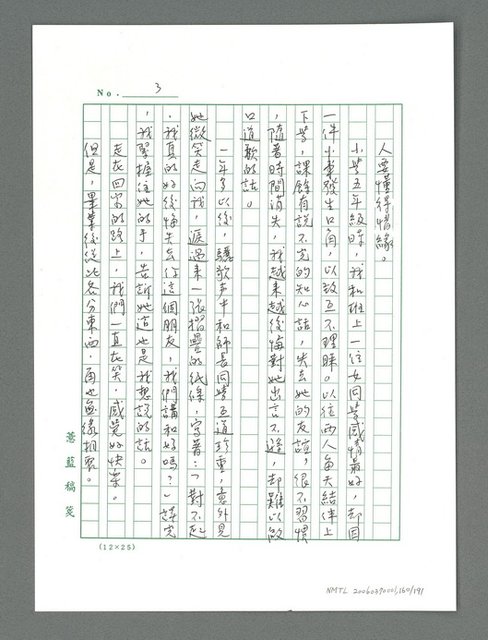 No. 3
人要懂得惜緣。
小學五年級時，我和班上一位女同學感情最好，却因
一件小事發生口角，以致互不理睬。以往兩人每天結伴上
下學，課餘有說不完的知心話，失去她的友誼，很不習慣
，隨著時間消失，我越來越後悔對她出言不遜，却難以啟
口道歉的話。
一年多以後，驪歌声中和師長同學互道珍重，意外見
她微笑走向我，遞過來一張摺疊的紙條，寫著：「對不起
，我真的好後悔失去你這個朋友，我們講和好嗎？」讀完
，我緊握住她的手，告訴她這也是我想說的話。
走在回家的路上，我們一直在笑，感覺好快樂。
但是，畢業後從此各分東西，再也無緣相聚。
薏藍稿箋
(12×25)
NMTL 20060390001,160/191